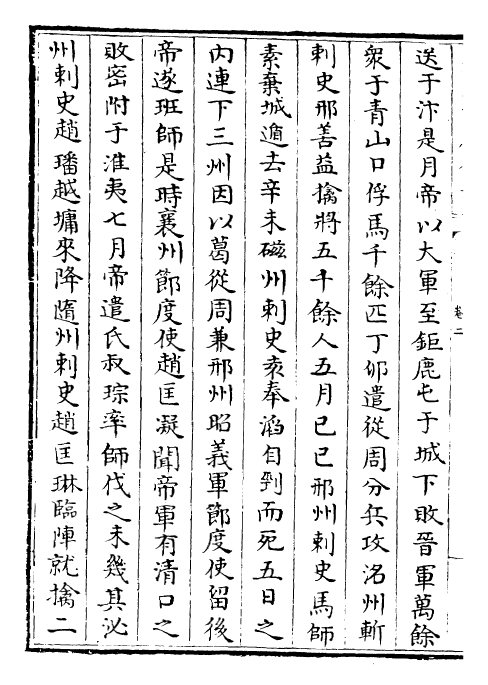 送于汴是月帝以大軍至鉅鹿屯于城下敗晉軍萬餘
衆于青山口俘馬千餘匹丁卯遣從周分兵攻洺州斬
刺史邢善益擒將五千餘人五月己巳邢州刺史馬師
素棄城遁去辛未磁州刺史袁奉滔自剄而死五日之
内連下三州因以葛從周兼邢州昭義軍節度使留後
帝遂班師是時襄州節度使趙匡凝聞帝軍有清口之
敗密附于淮夷七月帝遣氏叔琮率師伐之未幾其泌
州刺史趙璠越墉來降隨州刺史趙匡琳臨陣就擒二
卷二